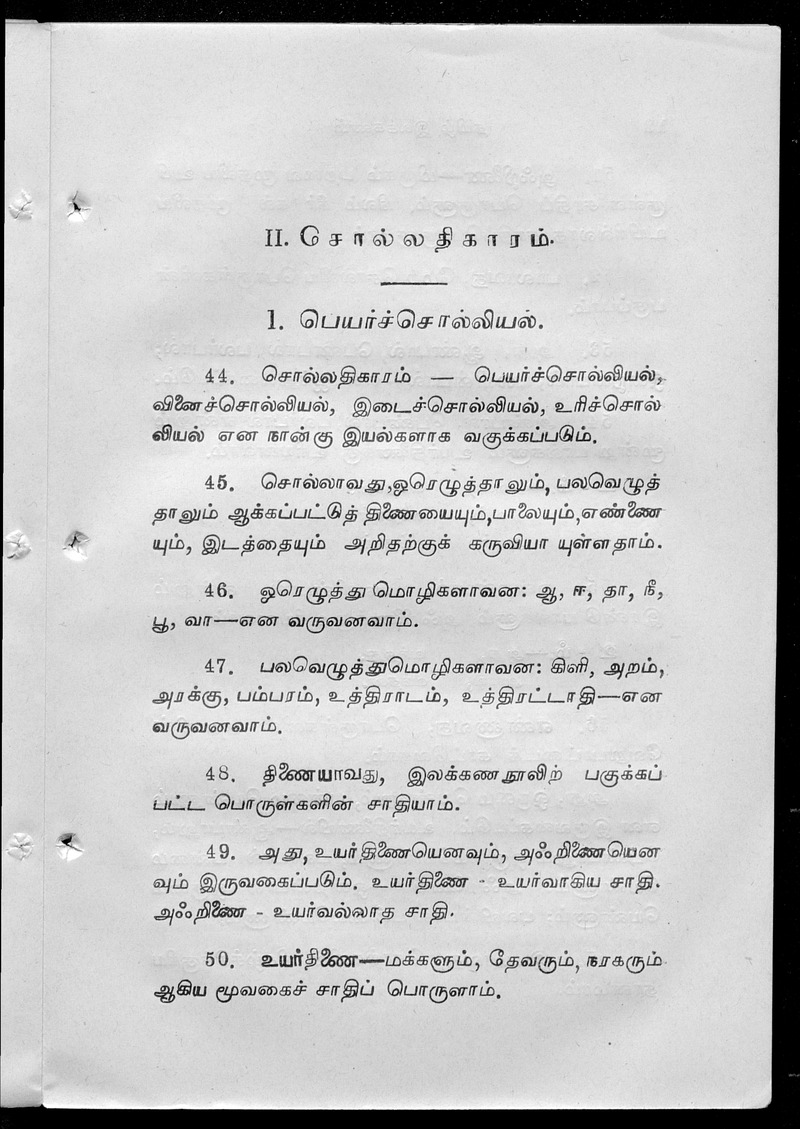 II. சொல்லதிகாரம்.
1. பெயர்ச்சொல்லியல்.
44. சொல்லதிகாரம் — பெயர்ச்சொல்லியல்,
வினைச்சொல்லியல், இடைச்சொல்லியல், உரிச்சொல்
லியல் என நான்கு இயல்களாக வகுக்கப்படும்.
45. சொல்லாவது, ஒரெழுத்தாலும், பலவெழுத்
தாலும் ஆக்கப்பட்டுத் திணையையும், பாலையும், எண்ணை
யும், இடத்தையும் அறிதற்குக் கருவியா யுள்ளதாம்.
46. ஒரெழுத்து மொழிகளாவன: ஆ, ஈ, தா, நீ,
பூ, வா—என வருவனவாம்.
47. பலவெழுத்துமொழிகளாவன: கிளி, அறம்,
அரக்கு, பம்பரம், உத்திராடம், உத்திரட்டாதி—என
வருவனவாம்.
48. திணையாவது, இலக்கணநூலிற் பகுக்கப்
பட்ட பொருள்களின் சாதியாம்.
49. அது, உயர்திணையெனவும், அஃறிணையென
வும் இருவகைப்படும். உயர்திணை - உயர்வாகிய சாதி.
அஃறிணை - உயர்வல்லாத சாதி.
50. உயர்திணை—மக்களும், தேவரும், நரகரும்
ஆகிய மூவகைச் சாதிப் பொருளாம்.